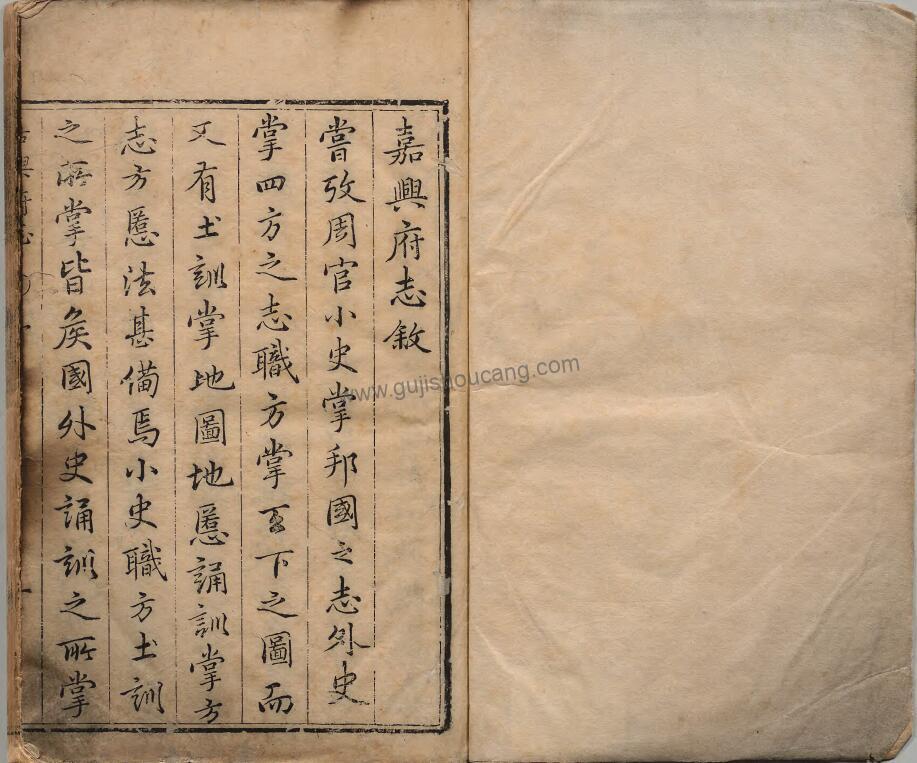 嘉興府志敘
嘗攷周官小史掌邦國之志外史
掌四方之志職方掌天下之圖而
又有土訓掌地圖地慝誦訓掌方
志方慝法甚備焉小史職方土訓
之所掌皆矦國外史誦訓之所掌
www.gujishoucang.com